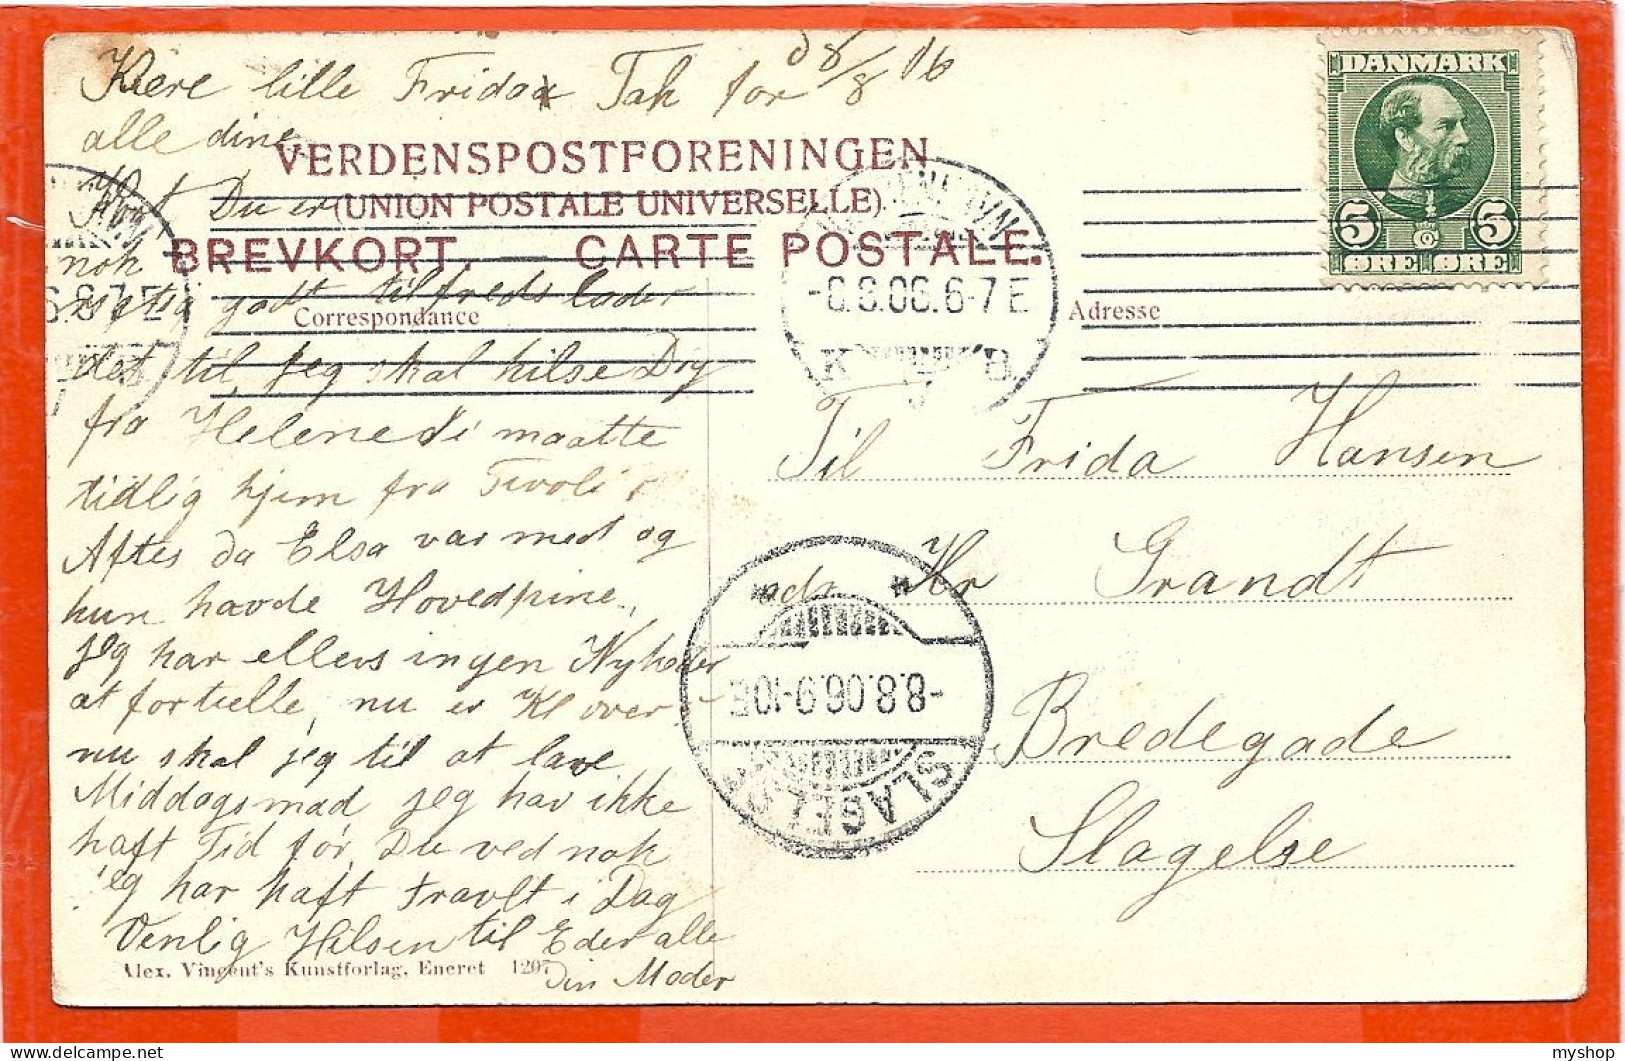 8/8 06
Kære lille Frida Tak for
alle dine
Kort Du er
nok
godt tilfreds lader
det til, Jeg skal hilse Dig
fra Helene. Vi maatte
tidlig hjem fra Tivoli i
Aftes da Elsa var med og
hun havde Hovedpine,
Jeg har ellers ingen Nyheder
at fortælle, nu er Kl over
nu skal jeg til at lave
Middagsmad jeg har ikke
haft Tid før, Du ved nok
jeg har haft Travlt i Dag
Venlig Hilsen til Eder alle
Din Moder
VERDENSPOSTFORENINGEN
(UNION POSTALE UNIVERSELLE)
BREVKORT. — CARTE POSTALE.
Correspondance
Adresse
DANMARK
5 5
ØRE ØRE
-8.8.06.6-7E
K B
6-7E
Til Frida Hansen
adr. Hr Grandt
Bredegade
Slagelse
-8.8.06.9-10E
SLAGELSE
Alex. Vincent's Kunstforlag, Eneret 1207
myshop
delcampe.net